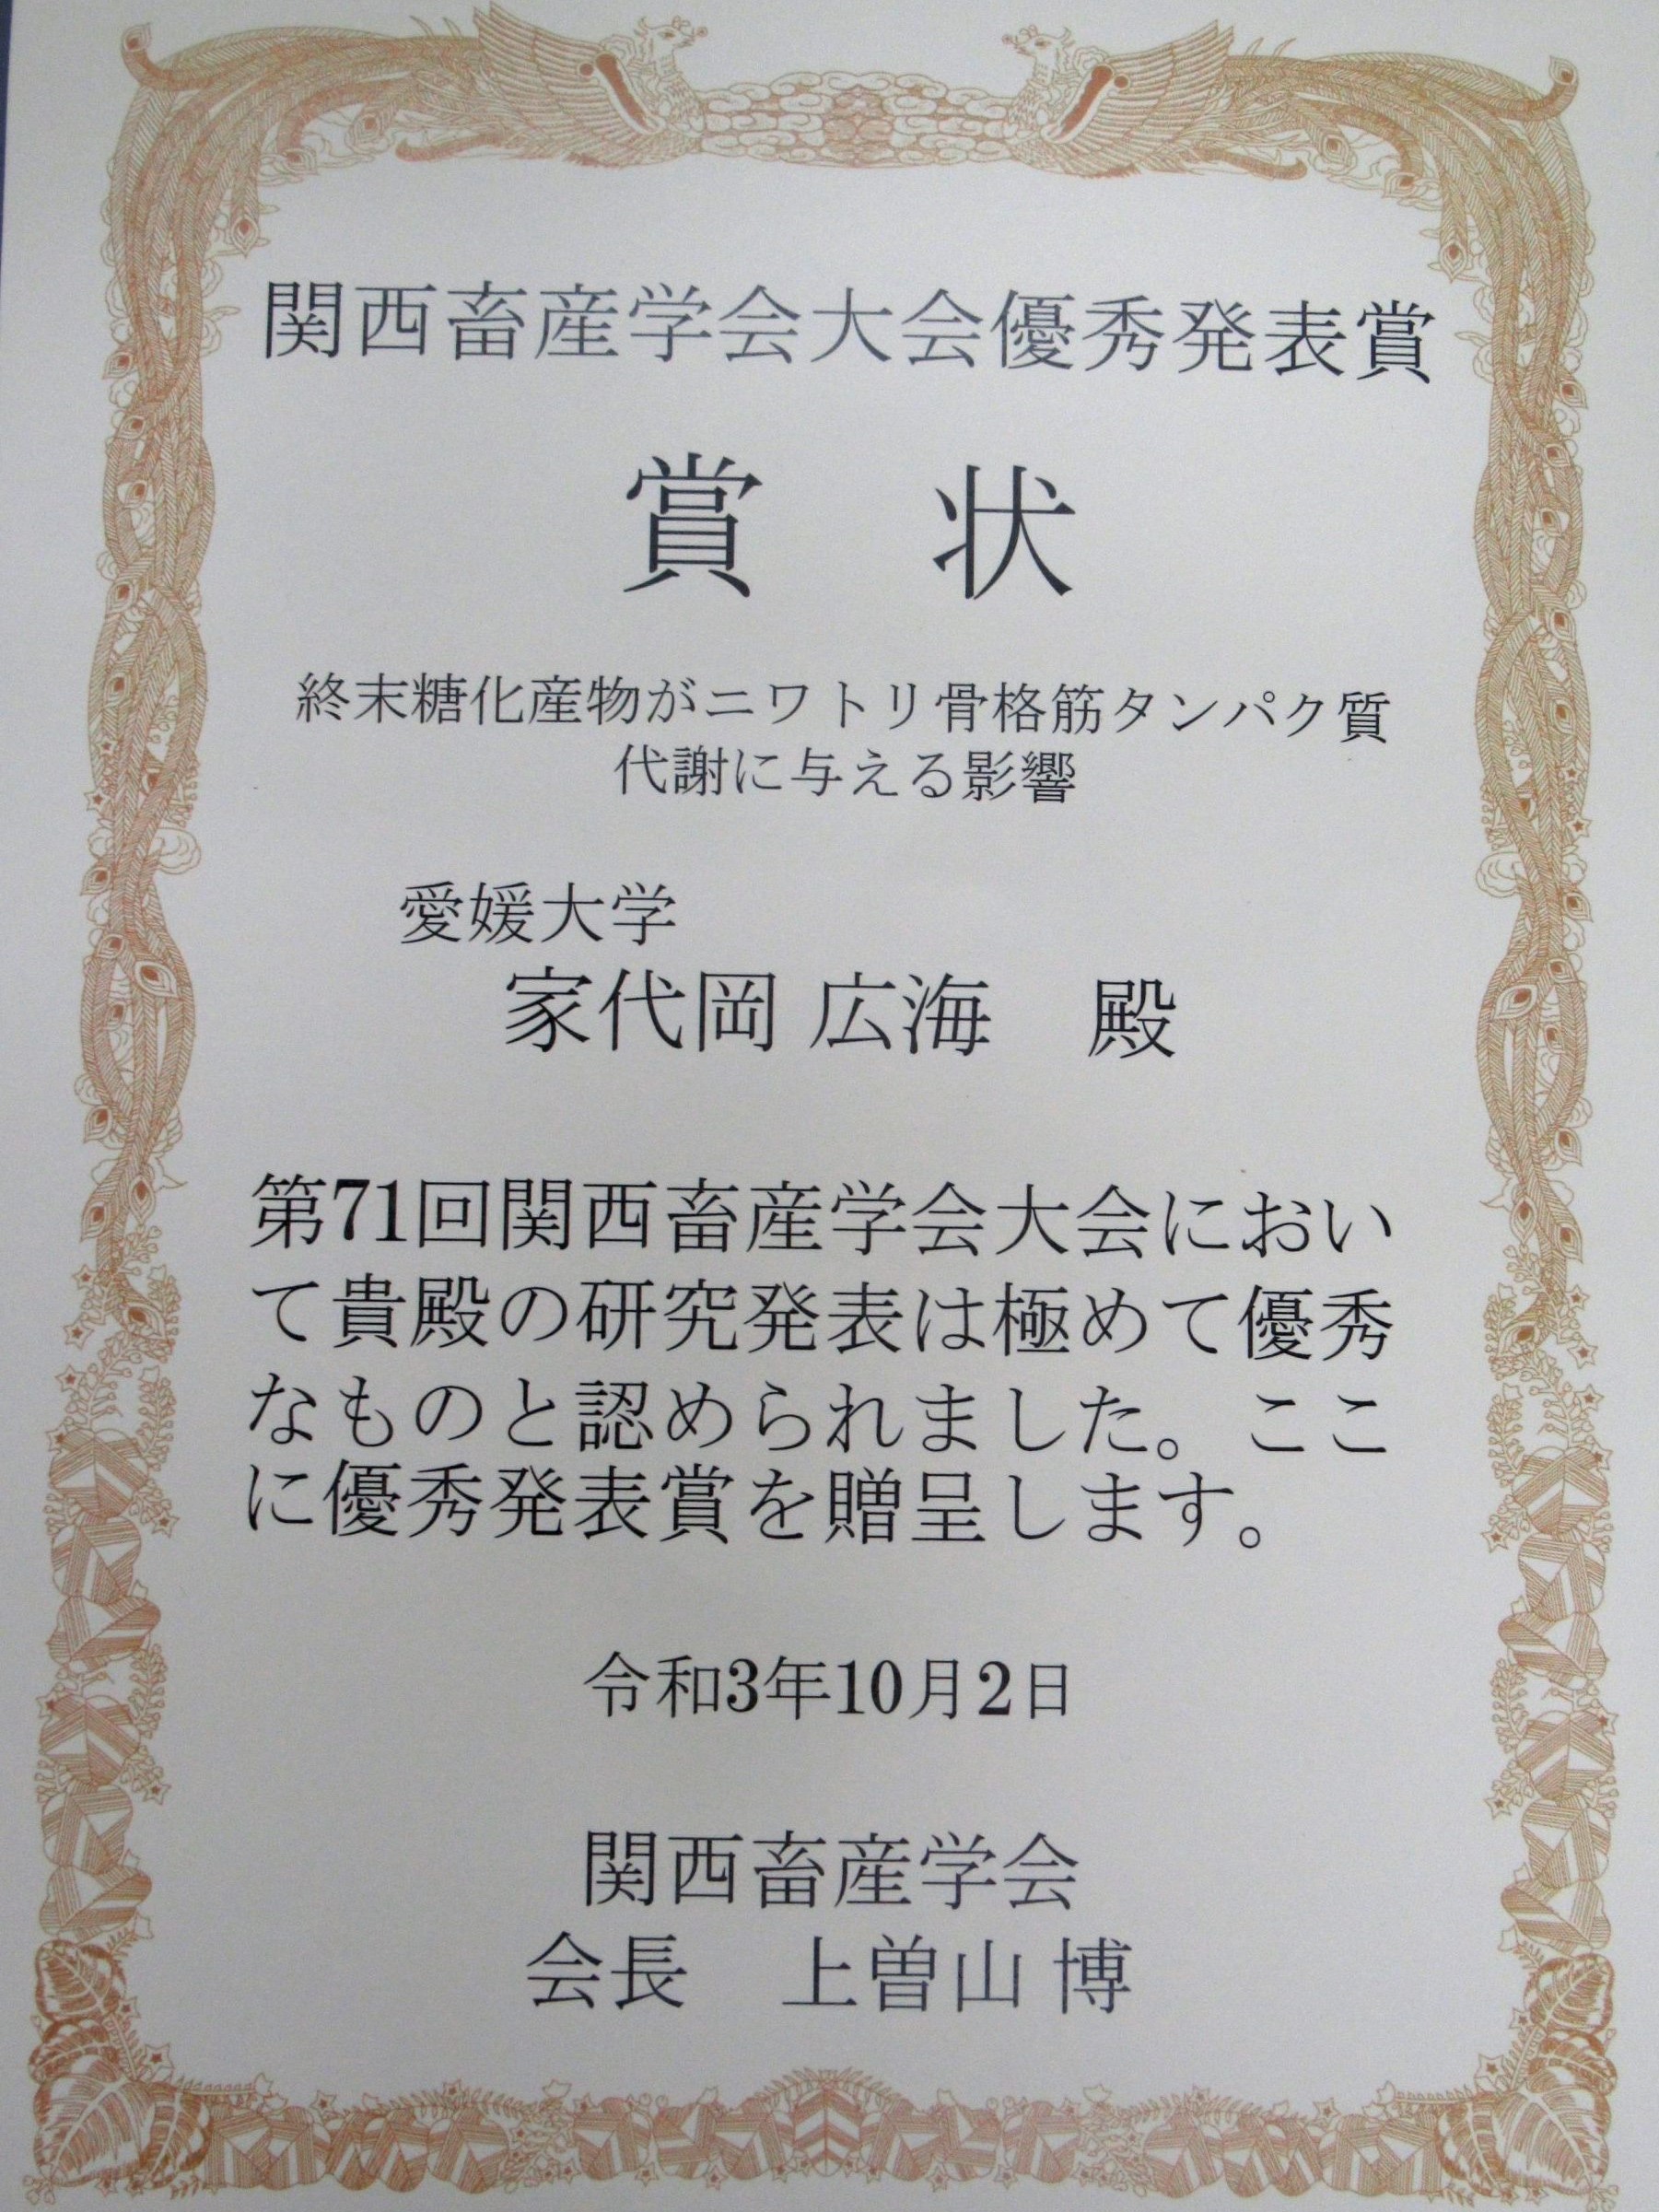 関西畜産学会大会優秀発表賞
賞　状
終末糖化産物がニワトリ骨格筋タンパク質
代謝に与える影響
愛媛大学
家代岡 広海　殿
第71回関西畜産学会大会におい
て貴殿の研究発表は極めて優秀
なものと認められました。ここ
に優秀発表賞を贈呈します。
令和3年10月2日
関西畜産学会
会長　上曽山 博